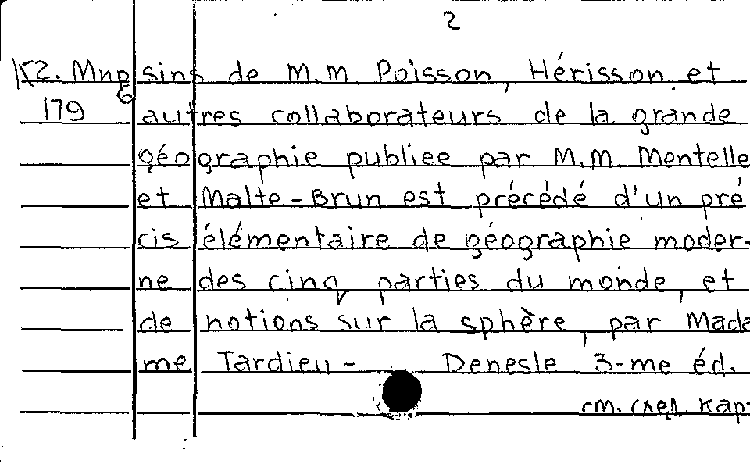 2
152. Мир sins de M.M Poisson, Hérisson et
179 autres collaborateurs de la grande
géographie publiee par M.M Mentelle
et Malte-Brun est précédé d'un pré
cis élémentaire de géographie moder-
ne des cinq parties du monde, et
de notions sur la sphère, par Mada
me Tardieu - Denesle 3-me éd.
см. след. карт